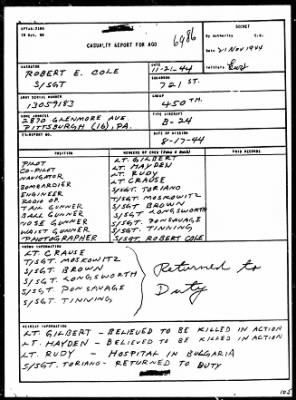 SECRET
CASUALTY REPORT FOR AGO
6986
By Authority C.G.
Date 21 Nov 1944
Initials
NARRATOR
ROBERT E. COLE
S/SGT
DATE
11-21-44
SQUADRON
721 ST.
ARMY SERIAL NUMBER
13059183
GROUP
450 TH.
HOME ADDRESS
2870 GLENMORE AVE.
PITTSBURGH (16), PA.
TYPE AIRCRAFT
B-24
DATE OF MISSION
8-17-44
POSITION
MEMBERS OF CREW (Name & Rank)
PAID RECORDS
PILOT LT. GILBERT
CO-PILOT LT. HAYDEN
NAVIGATOR LT. RUDY
BOMBARDIER LT CRAUSE
ENGINEER S/SGT. TORIANO
RADIO OP. T/SGT. MOSKOWITZ
TAIL GUNNER S/SGT BROWN
BALL GUNNER S/SGT. LONGSWORTH
NOSE GUNNER S/SGT. DONSAVAGE
WAIST GUNNER S/SGT. TINNING
PHOTOGRAPHER S/SGT. ROBERT COLE
KNOWN INFORMATION
LT. CRAUSE
T/SGT. MOSKOWITZ
S/SGT. BROWN
S/SGT. LONGSWORTH
S/SGT. DONSAVAGE
S/SGT. TINNING
Returned to
Duty
HEARSAY INFORMATION
LT. GILBERT - BELIEVED TO BE KILLED IN ACTION
LT. HAYDEN - BELIEVED TO BE KILLED IN ACTION
LT. RUDY - HOSPITAL IN BULGARIA
S/SGT. TORIANO - RETURNED TO DUTY